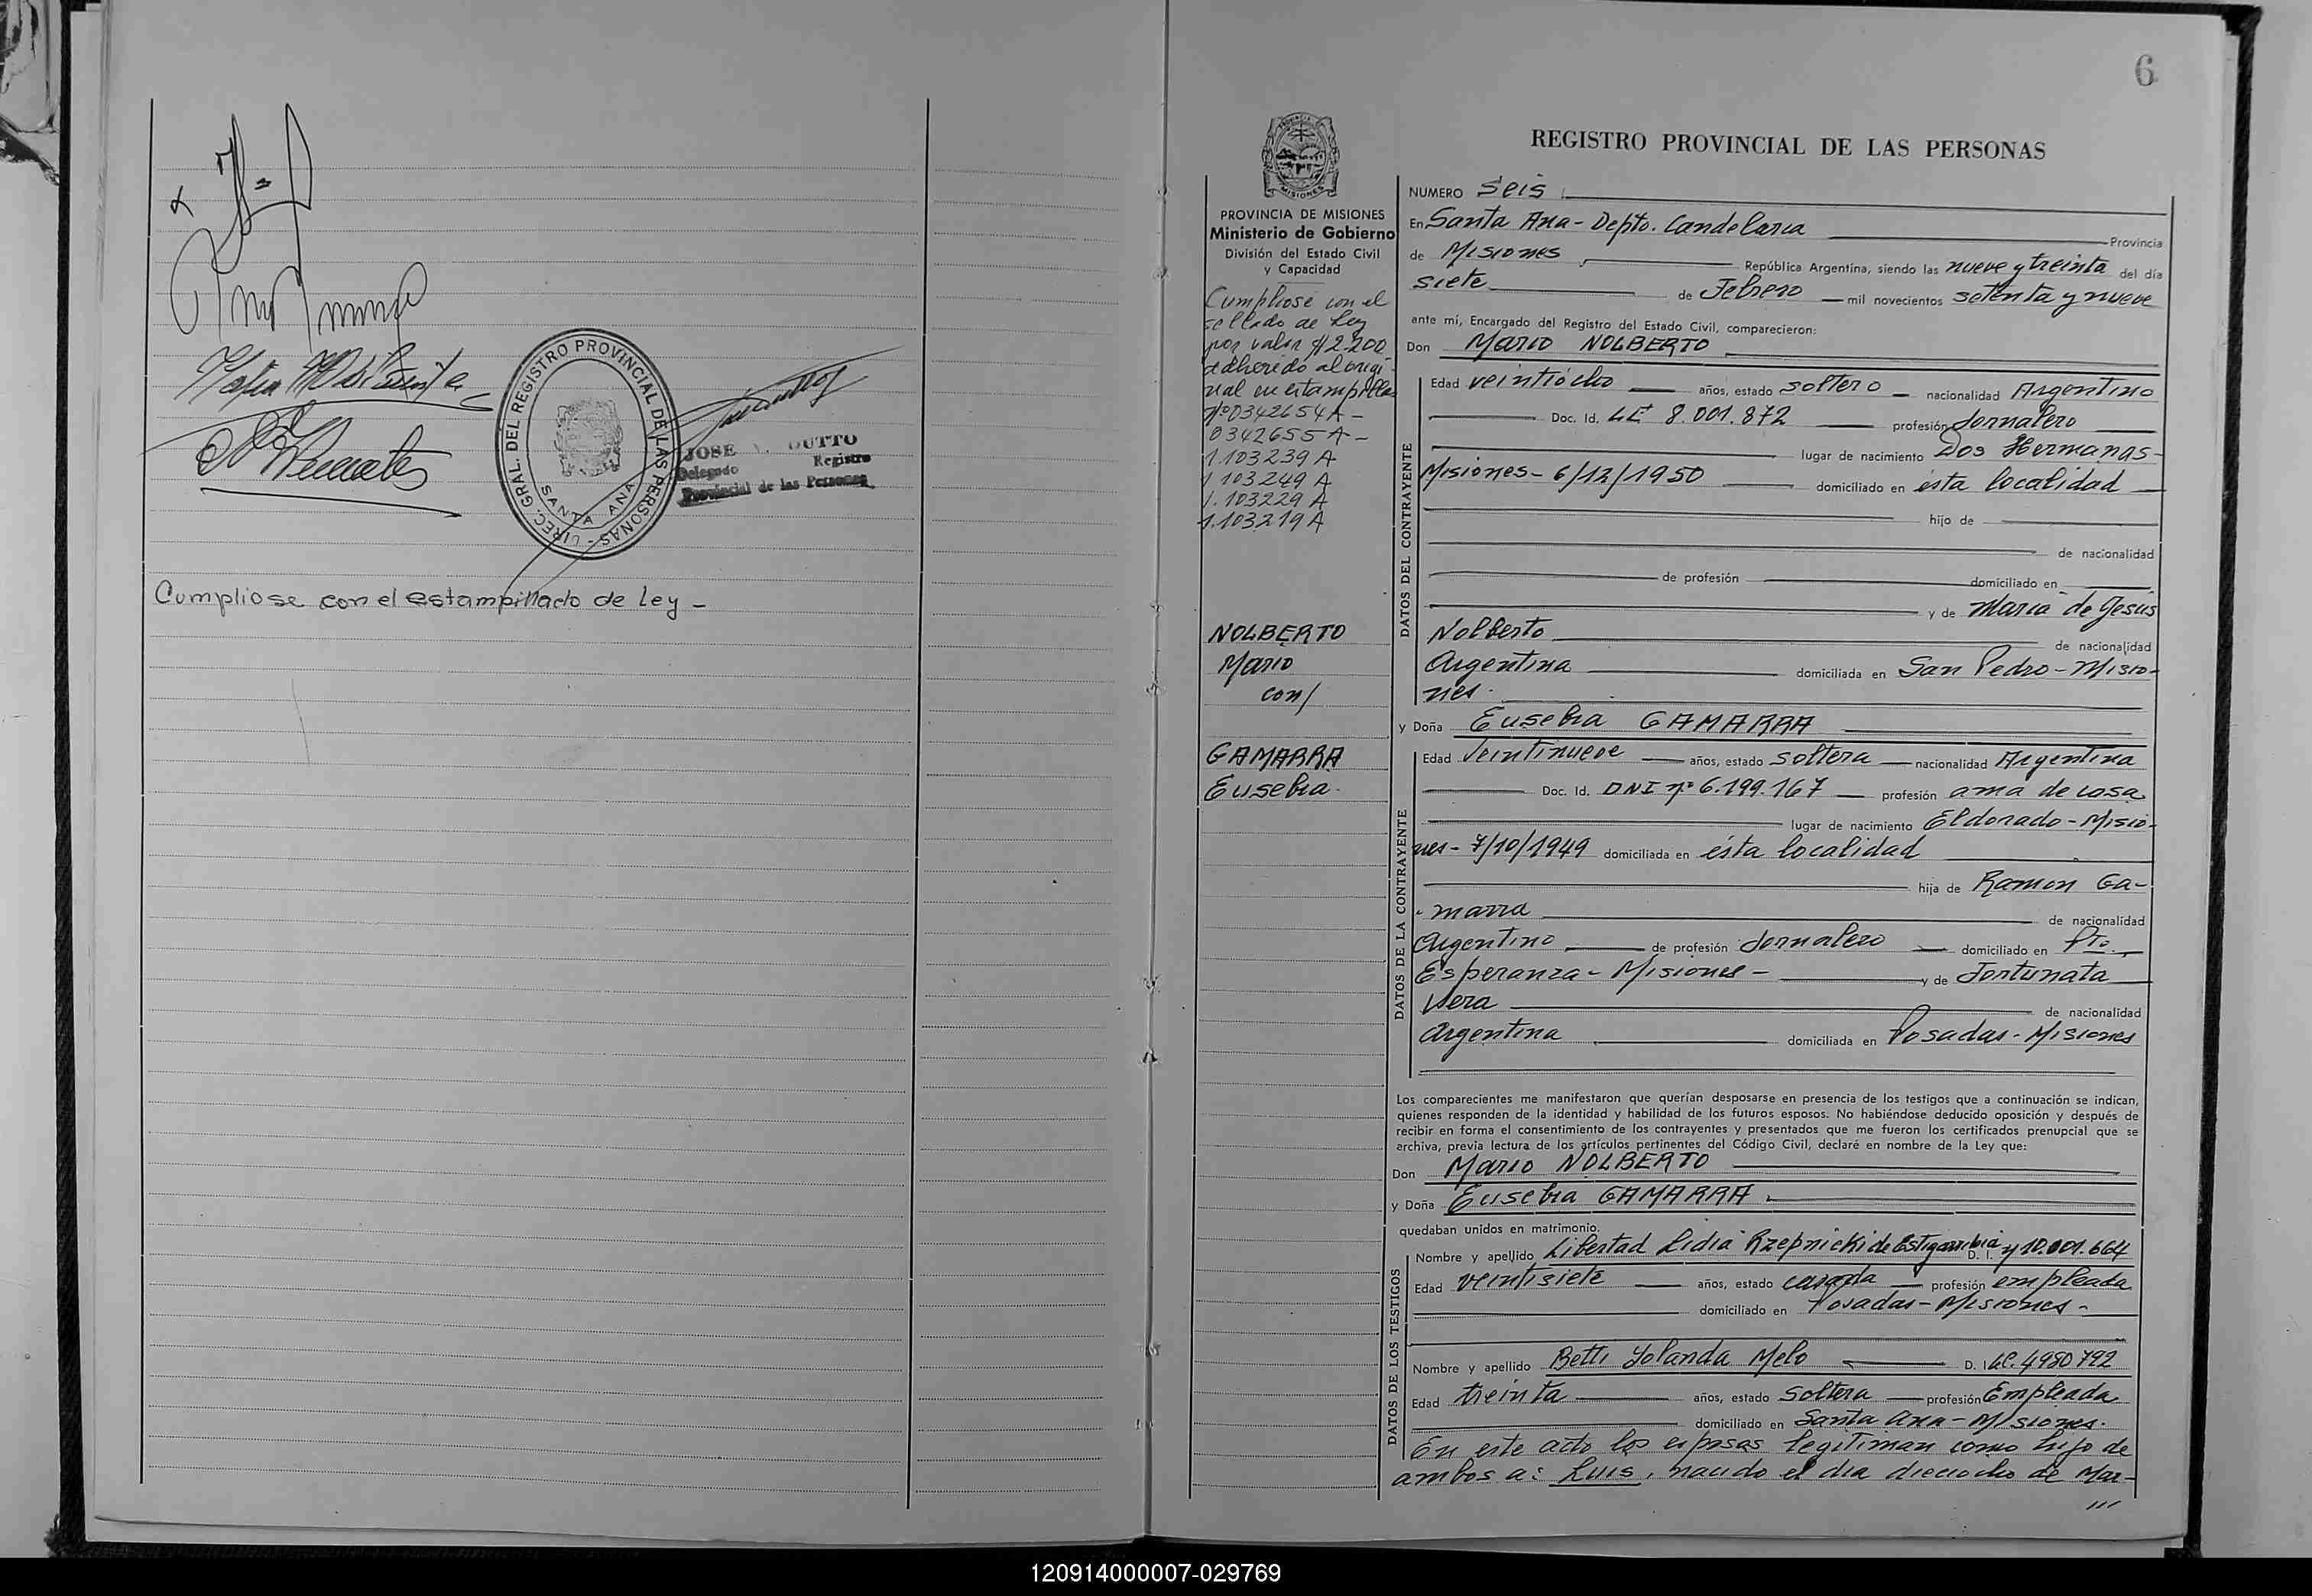 Cumpliose con el estampillado de ley -
DIREC. GRAL. DEL REGISTRO PROVINCIAL DE LAS PERSONAS -
SANTA ANA
JOSE DUTTO
Delegado Registro
Provincial de las Personas
6
REGISTRO PROVINCIAL DE LAS PERSONAS
PROVINCIA DE MISIONES
Ministerio de Gobierno
División del Estado Civil
y Capacidad
Cumpliose con el
sellado de Ley
por valor $ 2.200
adherido al origi-
nal en estampillas
Nº 0342654 A -
0342655 A -
1.103239 A
1.103249 A
1.103229 A
1.103219 A
NOLBERTO
Mario
con/
GAMARRA
Eusebia.
NUMERO Seis
En Santa Ana - Depto. Candelaria Provincia
de Misiones, República Argentina, siendo las nueve y treinta del día
siete de Febrero mil novecientos setenta y nueve
ante mí, Encargado del Registro del Estado Civil, comparecieron:
Don Mario NOLBERTO
DATOS DEL CONTRAYENTE
Edad veintiocho años, estado soltero nacionalidad Argentino
Doc. Id. LE 8.001.872 profesión Jornalero
lugar de nacimiento Dos Hermanas-
Misiones - 6/12/1950 domiciliado en ésta localidad
hijo de
de nacionalidad
de profesión domiciliado en
y de Maria de Jesus
Nolberto de nacionalidad
Argentina domiciliada en San Pedro - Misio-
nes.
y Doña Eusebia GAMARRA
DATOS DE LA CONTRAYENTE
Edad Veintinueve años, estado soltera nacionalidad Argentina
Doc. Id. DNI Nº 6.199.167 profesión ama de casa
lugar de nacimiento Eldorado - Misio-
nes - 7/10/1949 domiciliada en ésta localidad
hija de Ramon Ga-
marra de nacionalidad
Argentino de profesión Jornalero domiciliado en Pto.
Esperanza - Misiones - y de Fortunata
Vera de nacionalidad
Argentina domiciliada en Posadas - Misiones
Los comparecientes me manifestaron que querían desposarse en presencia de los testigos que a continuación se indican,
quienes responden de la identidad y habilidad de los futuros esposos. No habiéndose deducido oposición y después de
recibir en forma el consentimiento de los contrayentes y presentados que me fueron los certificados prenupcial que se
archiva, previa lectura de los artículos pertinentes del Código Civil, declaré en nombre de la Ley que:
Don Mario NOLBERTO
y Doña Eusebia GAMARRA.
quedaban unidos en matrimonio.
DATOS DE LOS TESTIGOS
Nombre y apellido Libertad Lidia Rzepnicki de Estigarribia D. I. 10.001.664
Edad veintisiete años, estado casada profesión empleada
domiciliado en Posadas - Misiones -
Nombre y apellido Betti Yolanda Melo D. I LC. 4980792
Edad treinta años, estado soltera profesión Empleada
domiciliado en Santa Ana - Misiones.
En este acto los esposos legitiman como hijo de
ambos a: Luis, nacido el dia dieciocho de Mar-
///
120914000007-029769